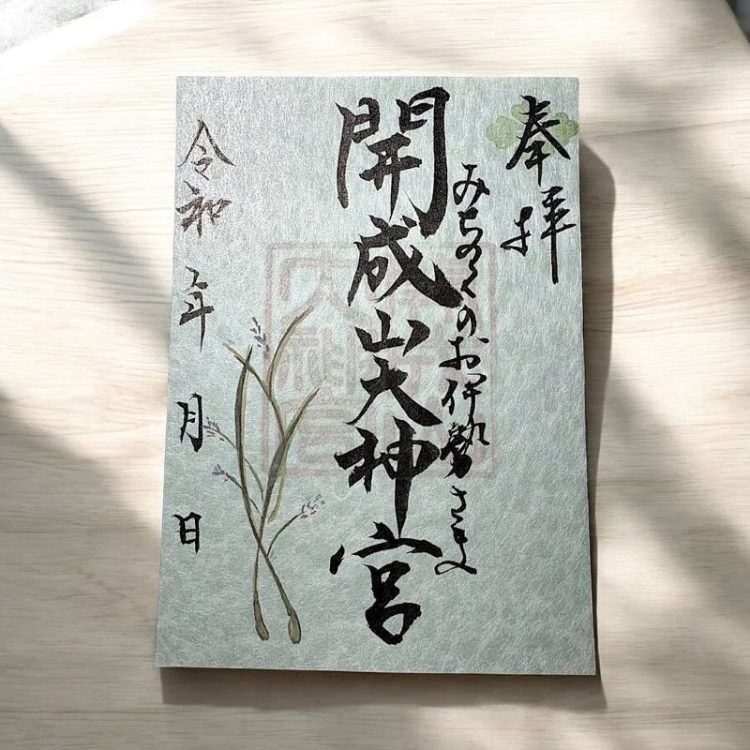 奉拝
みちのくのお伊勢さま
開成山大神宮
令和 年 月 日